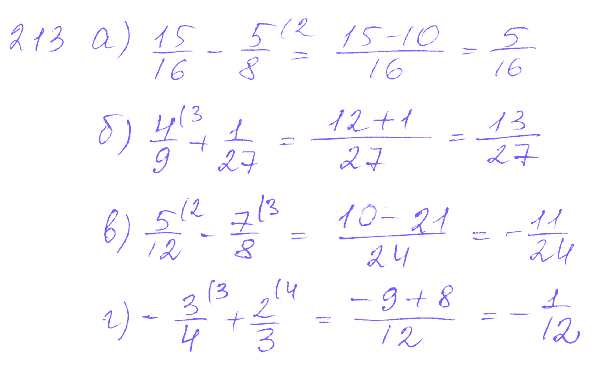 213 а) 15/16 - 5/8 (2 = (15-10)/16 = 5/16
б) 4/9 (3 + 1/27 = (12+1)/27 = 13/27
в) 5/12 (2 - 7/8 (3 = (10-21)/24 = -11/24
г) -3/4 (3 + 2/3 (4 = (-9+8)/12 = -1/12